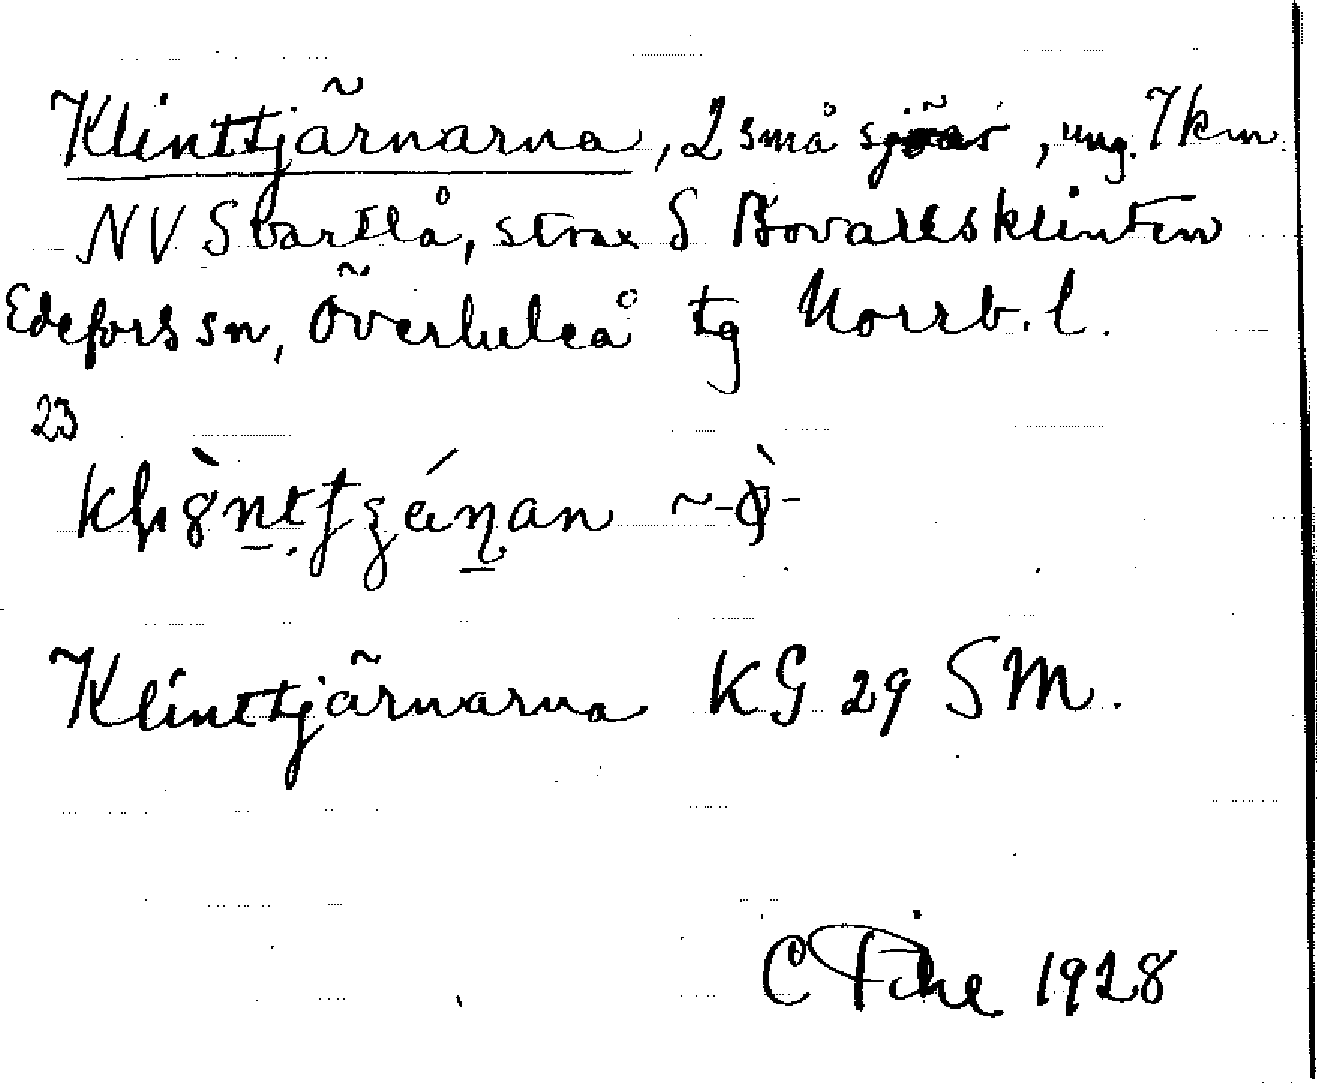 Klinttjärnarna, 2 små sjöar, ung. 7 km
NV Svartlå, strax S Bovallsklinten
Edefors sn, Överluleå tg Norrb. l.
23
~ -
Klinttjärnarna KG 29 SM.
C 1928